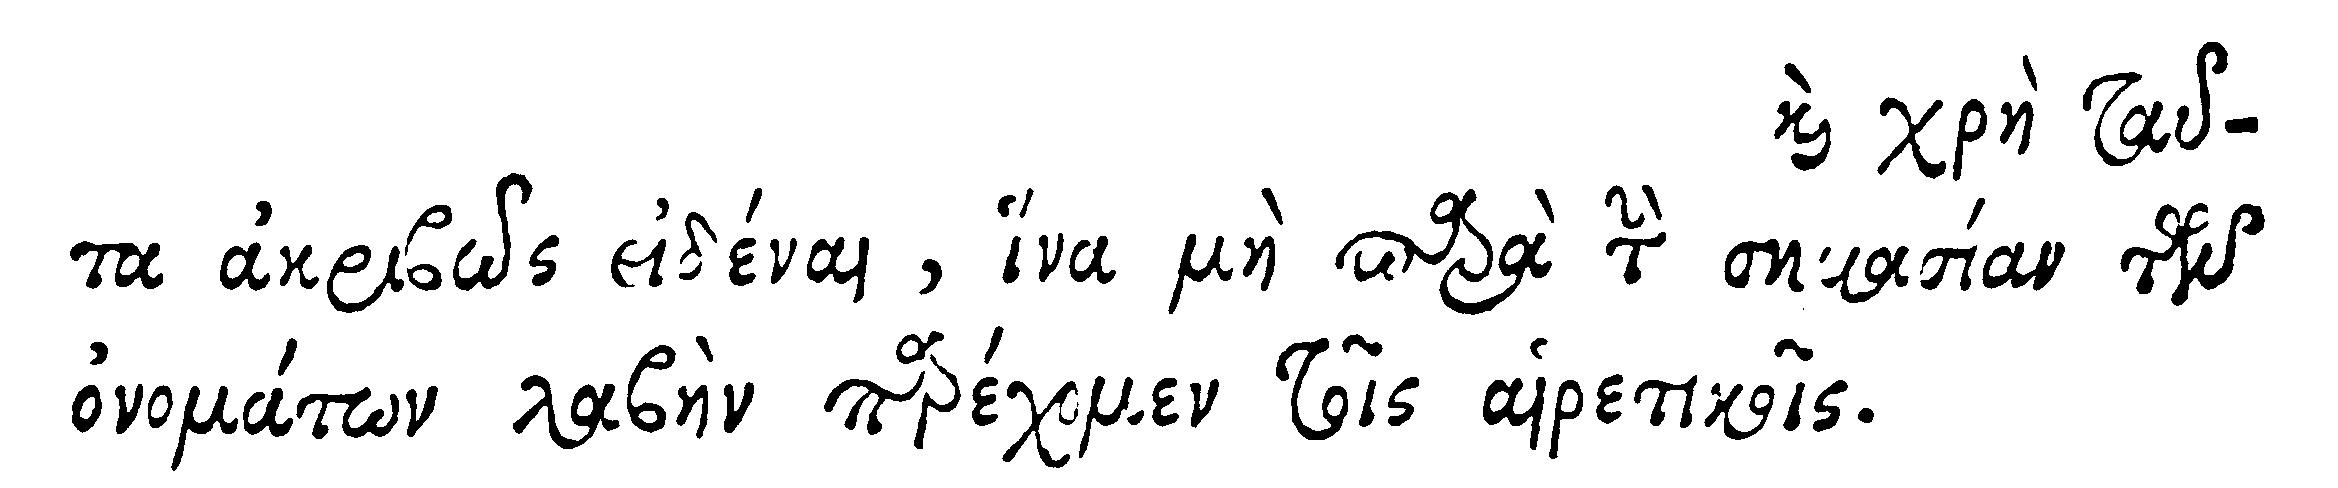 καὶ χρὴ ταῦ-
τα ἀκριβῶς εἰδέναι, ἵνα μὴ παρὰ τὴν σημασίαν τῶν
ὀνομάτων λαβὴν παρέχομεν τοῖς αἱρετικοῖς.